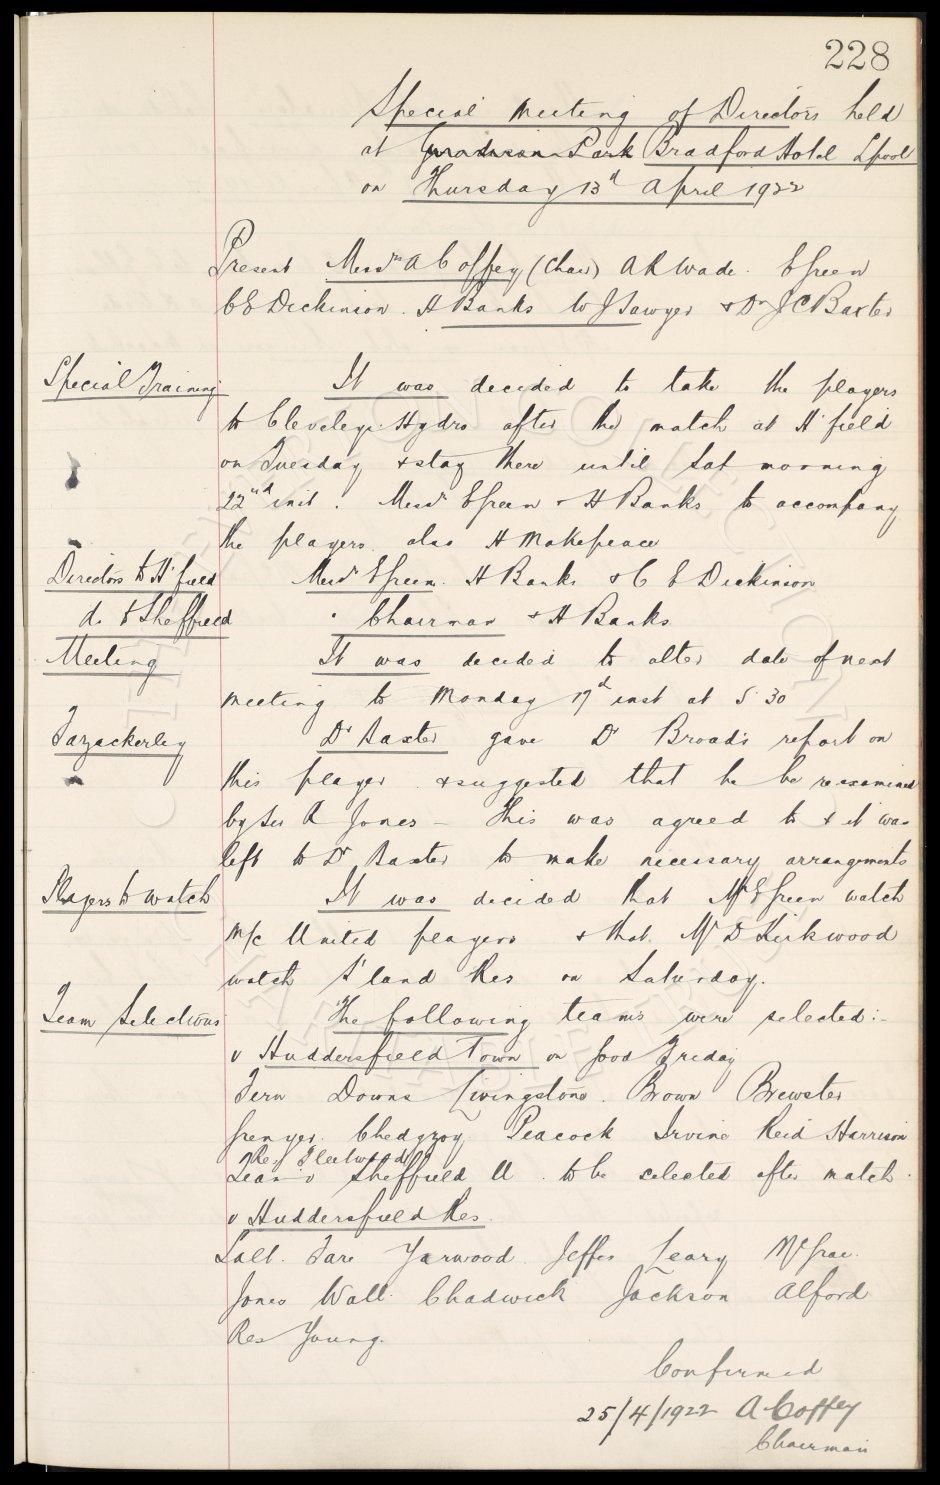 228
Special Meeting of Directors held
at Goodison Park Bradford Hotel Lpool
on Thursday 13th April 1922
Present Messrs A Coffey (Chair) A R Wade. E Green
C E Dickinson. H Banks W J Sawyer & Dr J C Baxter
Special Training It was decided to take the players
to Cleveleys Hydro after the match at H'field
on Tuesday & stay there until Sat morning
22nd inst. Messrs E Green & H Banks to accompany
the players also H Makepeace
Directors to H'field Messrs E Green. H Banks & C E Dickinson
do. to Sheffield " Chairman & H Banks
Meeting It was decided to alter date of next
meeting to Monday 17th inst at 5 30
Fazackerley Dr Baxter gave Dr Broad's report on
this player & suggested that he be re-examined
by Sir R Jones - This was agreed to & it was
left to Dr Baxter to make necessary arrangements
Players to watch It was decided that Mr E Green watch
M/c United players & that Mr D Kirkwood
watch S'land Res on Saturday.
Team Selections The following teams were selected:-
v Huddersfield Town on Good Friday
Fern Downs Livingstone. Brown Brewster
Grenyer. Chedgzoy Peacock Irvine Reid Harrison
Res Fleetwood
Team v Sheffield U. to be selected after match.
v Huddersfield Res.
Salt. Tare Yarwood Jeffs Leary McGrae.
Jones Wall Chadwick Jackson Alford
Res Young.
Confirmed
25/4/1922 A Coffey
Chairman